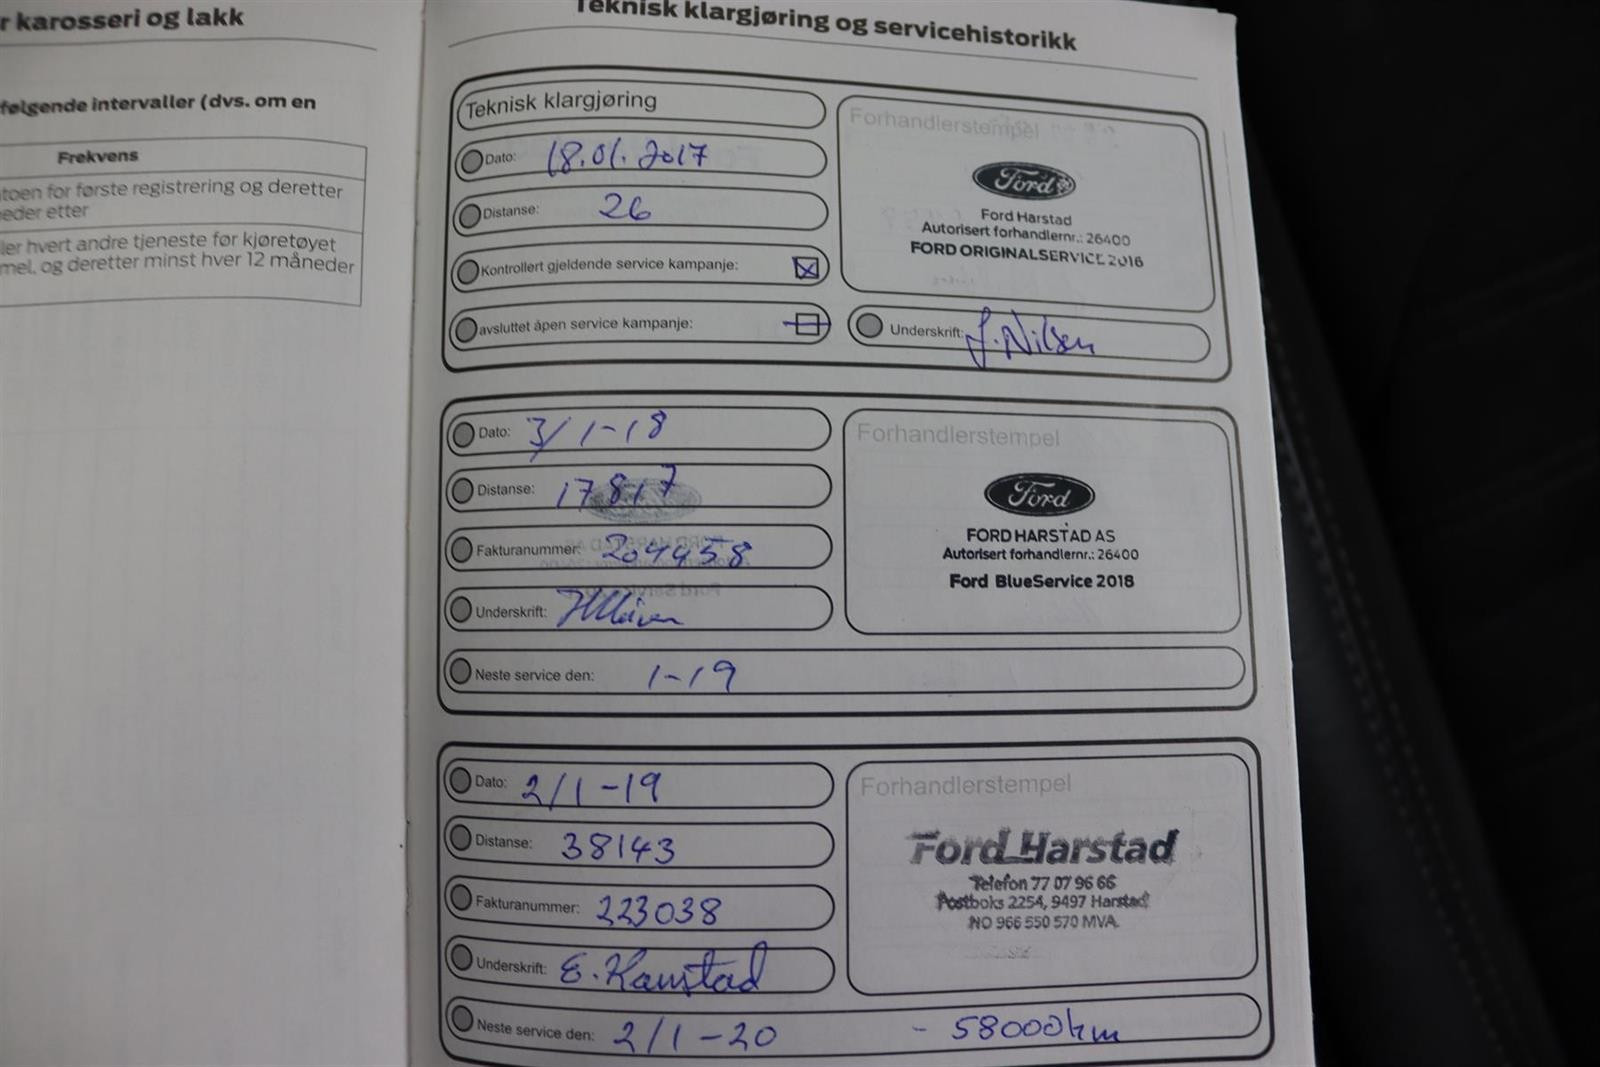 r karosseri og lakk
følgende intervaller (dvs. om en
Frekvens
toen for første registrering og deretter
eder etter
ler hvert andre tjeneste før kjøretøyet
mel, og deretter minst hver 12 måneder
Teknisk klargjøring og servicehistorikk
Teknisk klargjøring
Dato: 18.01.2017
Distanse: 26
Kontrollert gjeldende service kampanje:
avsluttet åpen service kampanje:
Forhandlerstempel
Ford
Ford Harstad
Autorisert forhandlernr.: 26400
FORD ORIGINALSERVICE 2016
Underskrift: J. Nilsen
Dato: 3/1-18
Distanse: 17817
Fakturanummer: 204458
Underskrift:
Neste service den: 1-19
Forhandlerstempel
Ford
FORD HARSTAD AS
Autorisert forhandlernr.: 26400
Ford BlueService 2018
Dato: 2/1-19
Distanse: 38143
Fakturanummer: 223038
Underskrift: E. Hanstad
Neste service den: 2/1-20 - 58000km
Forhandlerstempel
Ford Harstad
Telefon 77 07 96 66
Postboks 2254, 9497 Harstad
NO 966 550 570 MVA.